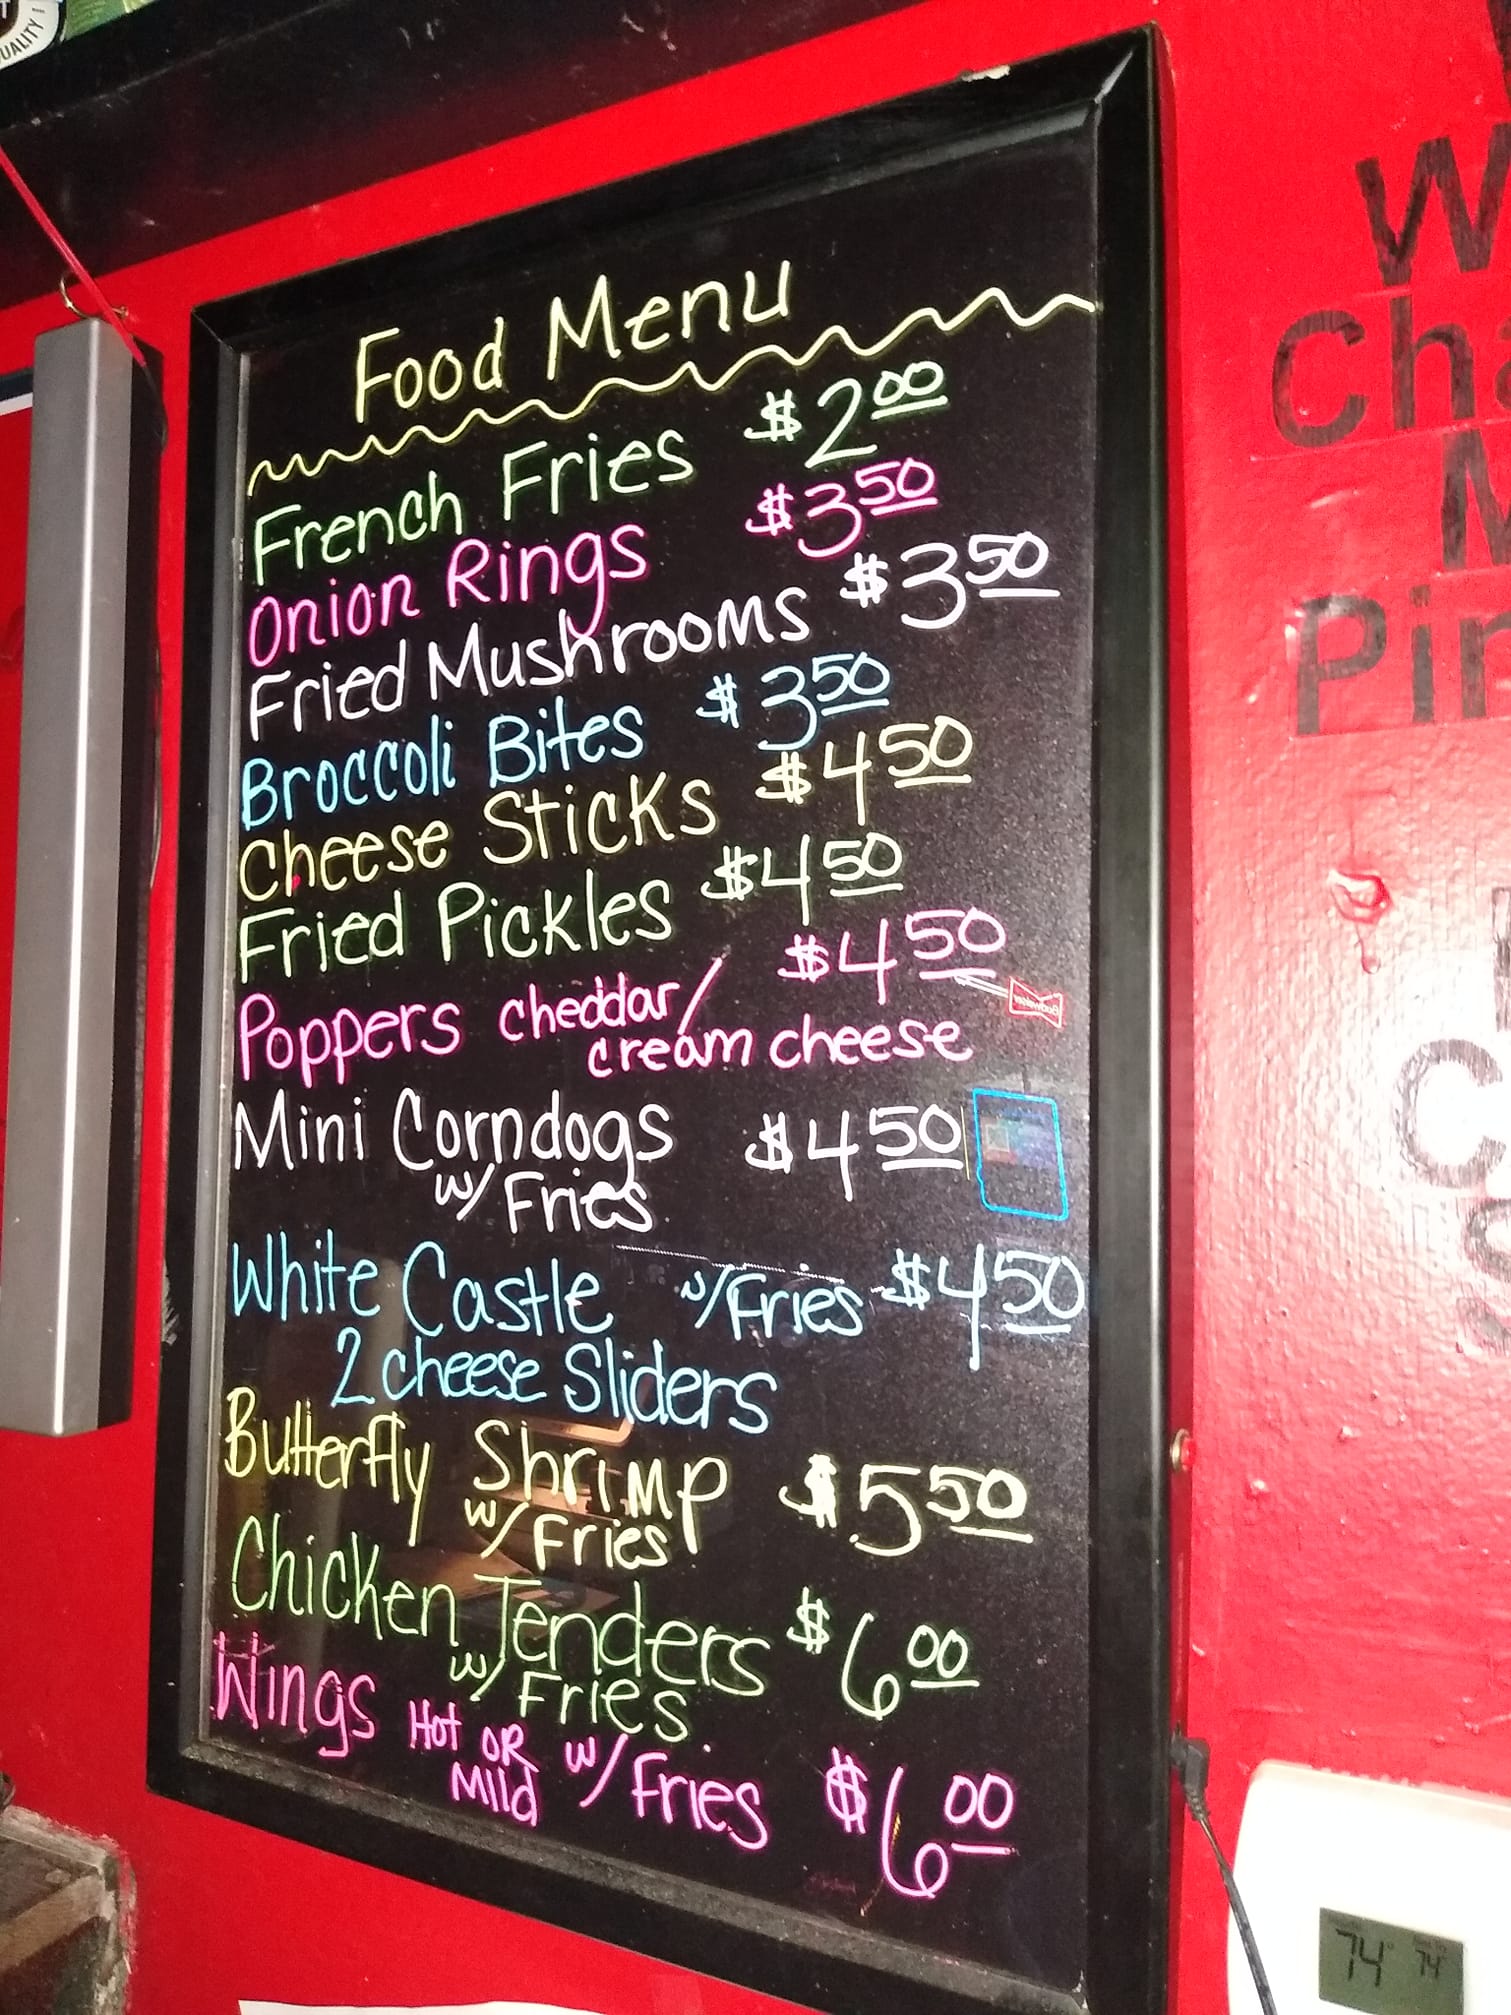 UALITY!
Food Menu
French Fries $2.00
Onion Rings $3.50
Fried Mushrooms $3.50
Broccoli Bites $3.50
Cheese Sticks $4.50
Fried Pickles $4.50
Poppers cheddar/ $4.50
cream cheese
Mini Corndogs $4.50
w/ Fries
White Castle w/Fries $4.50
2 cheese Sliders
Butterfly Shrimp $5.50
w/ Fries
Chicken Tenders $6.00
w/ Fries
Wings Hot OR w/ Fries $6.00
Mild
W
Ch
M
Pin
C
S
74° 74°